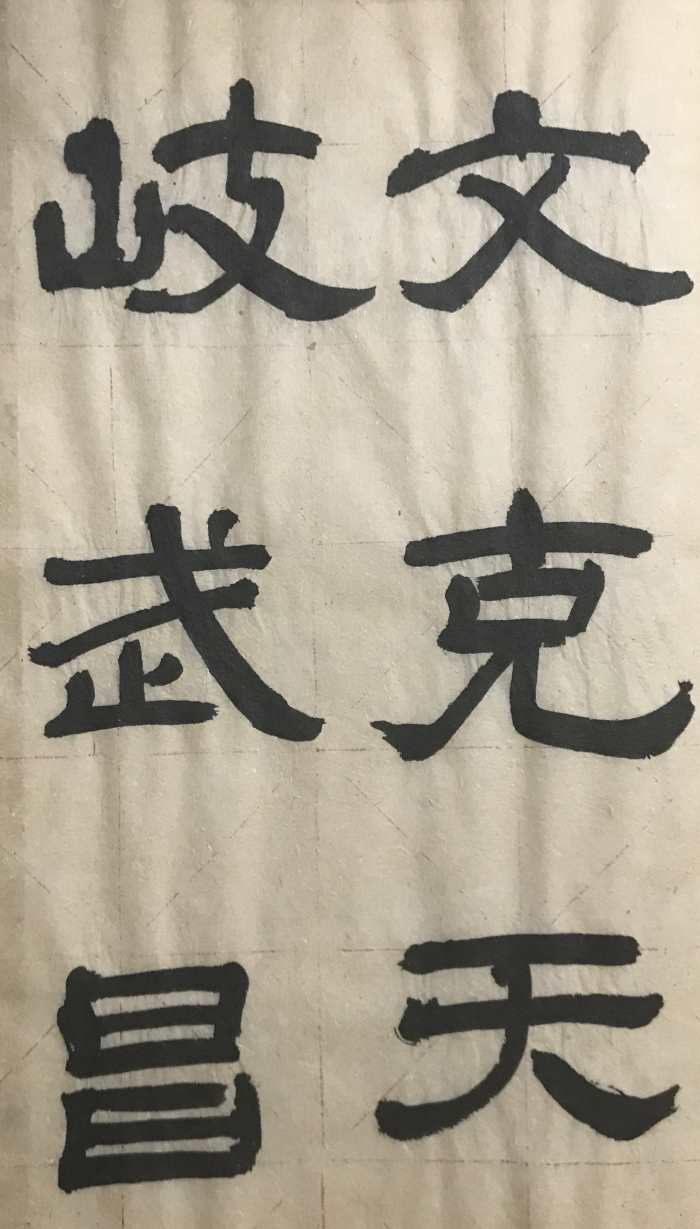 文克天
岐武昌